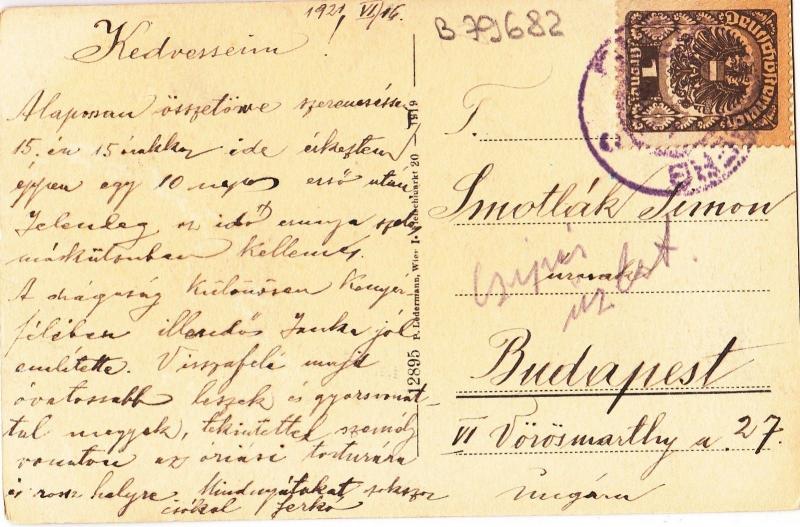 1921 VI/16.
B 79682
Kedveseim
Alaposan összetörve szerencsésen
15.-én 15 órakkor ide érkeztem
éppen egy 10 napos eső után
Jelenleg az idő csunya
máskülönben kellemes.
A drágaság különösen kenyér
félében illendős Janka jól
említette. Visszafelé majd
óvatosabb leszek és gyorsvonat-
tal megyek, tekintettel személy
vonaton az óriási torturára
és rossz helyre. Mindnyájatokat sokszor
csókol Jenő
12895 P. Ledermann, Wien I 20 — 1919
Deutschösterreich
1
T.
Smotlák Simon
Budapest
VI Vörösmarthy u. 27.
Ungarn